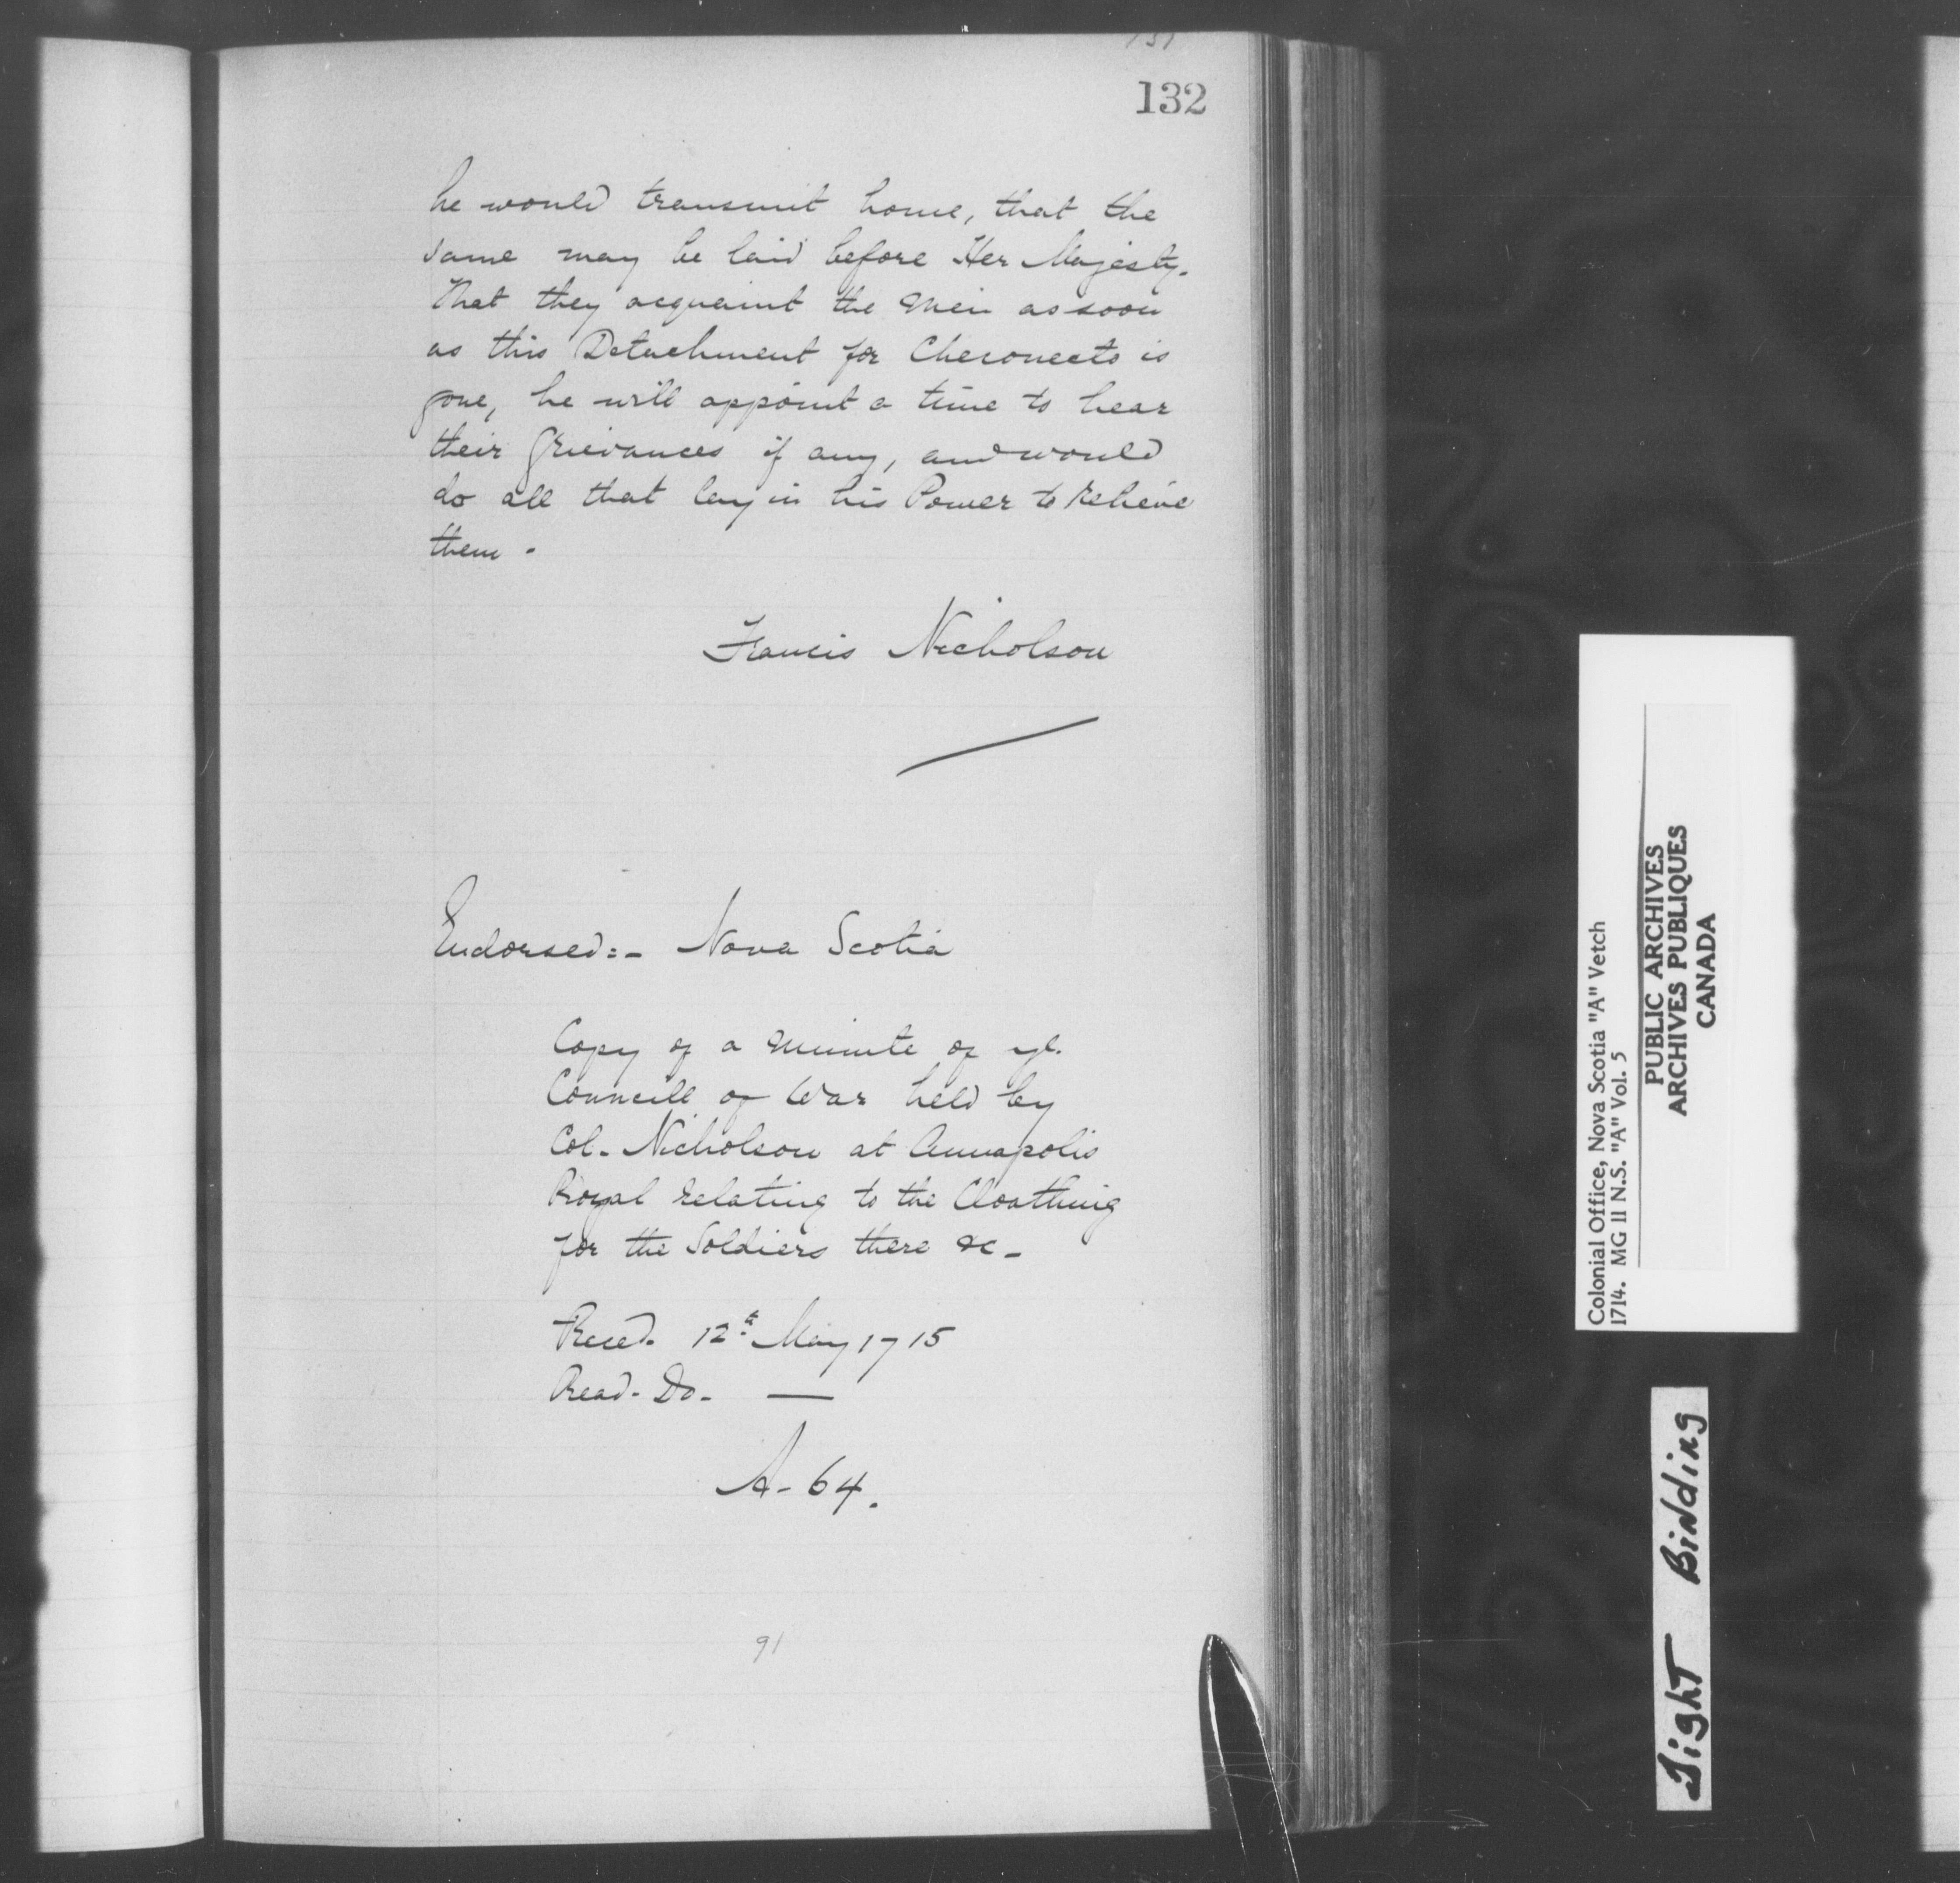 132
he would transmit home, that the
same may be laid before Her Majesty.
That they acquaint the Men as soon
as this Detachment for Checonects is
gone, he will appoint a time to hear
their Grievances if any, and would
do all that lay in his Power to Relieve
them.
Francis Nicholson
Endorsed:- Nova Scotia
Copy of a Minute of ye.
Councill of War held by
Col. Nicholson at Annapolis
Royal relating to the Cloathing
for the Soldiers there &c-
Reced. 12th May 1715
Read. Do. —
A-64.
91
Colonial Office, Nova Scotia "A" Vetch
1714. MG II N.S. "A" Vol. 5
PUBLIC ARCHIVES
ARCHIVES PUBLIQUES
CANADA
Tight Binding